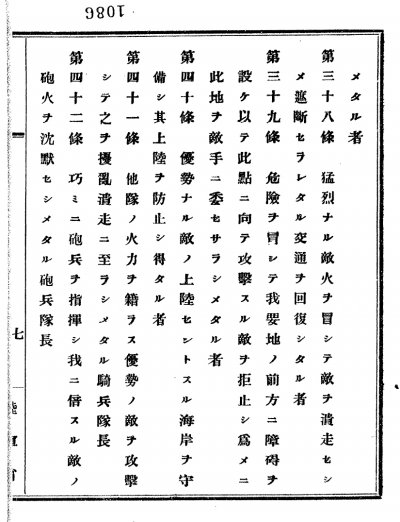 1086
メタル者
第三十八條 猛烈ナル敵火ヲ冒シテ敵ヲ潰走セシ
メ遮斷セラレタル交通ヲ回復シタル者
第三十九條 危險ヲ冒シテ我要地ノ前方ニ障碍ヲ
設ケ以テ此點ニ向テ攻擊スル敵ヲ拒止シ爲メニ
此地ヲ敵手ニ委セサラシメタル者
第四十條 優勢ナル敵ノ上陸セントスル海岸ヲ守
備シ其上陸ヲ防止シ得タル者
第四十一條 他隊ノ火力ヲ籍ラス優勢ノ敵ヲ攻擊
シテ之ヲ擾亂潰走ニ至ラシメタル騎兵隊長
第四十二條 巧ミニ砲兵ヲ指揮シ我ニ倍スル敵ノ
砲火ヲ沈默セシメタル砲兵隊長
七
陸軍省